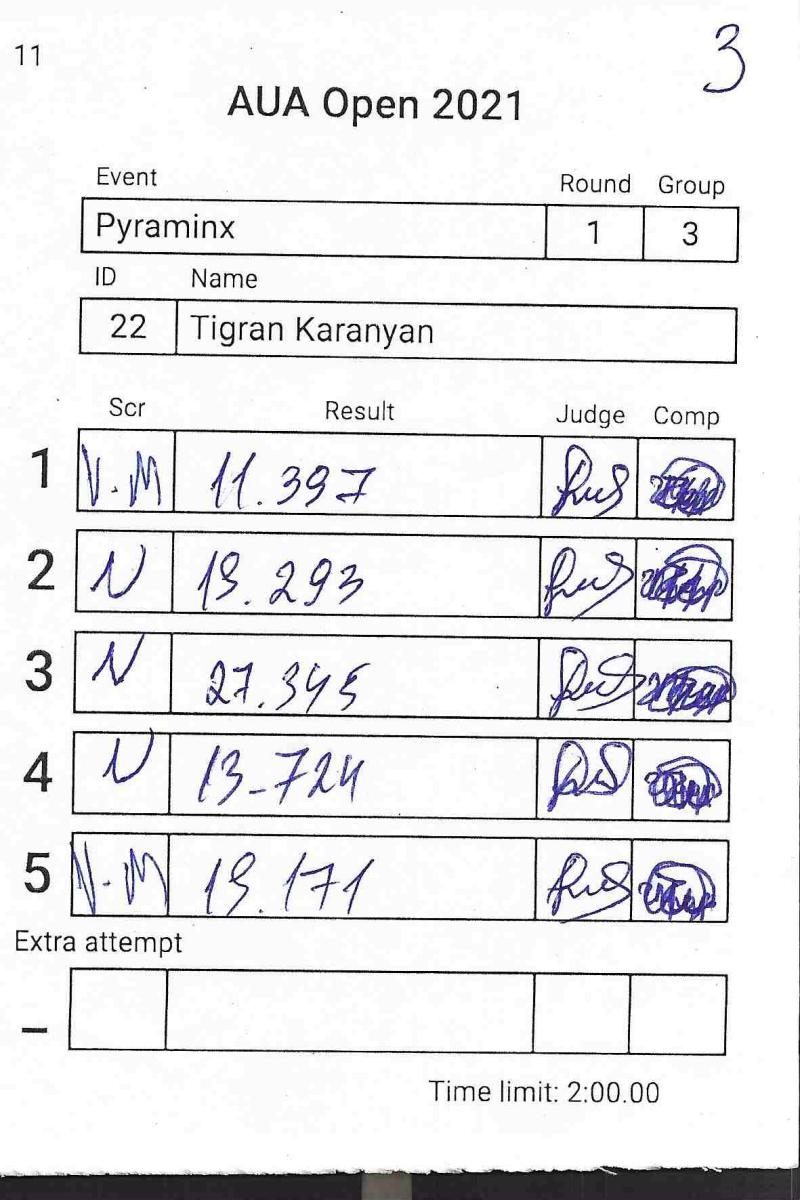 11
3
AUA Open 2021
Event Round Group
Pyraminx 1 3
ID Name
22 Tigran Karanyan
Scr Result Judge Comp
1 V.M 11.397
2 N 19.293
3 N 27.345
4 N 13.724
5 V.M 19.171
Extra attempt
–
Time limit: 2:00.00